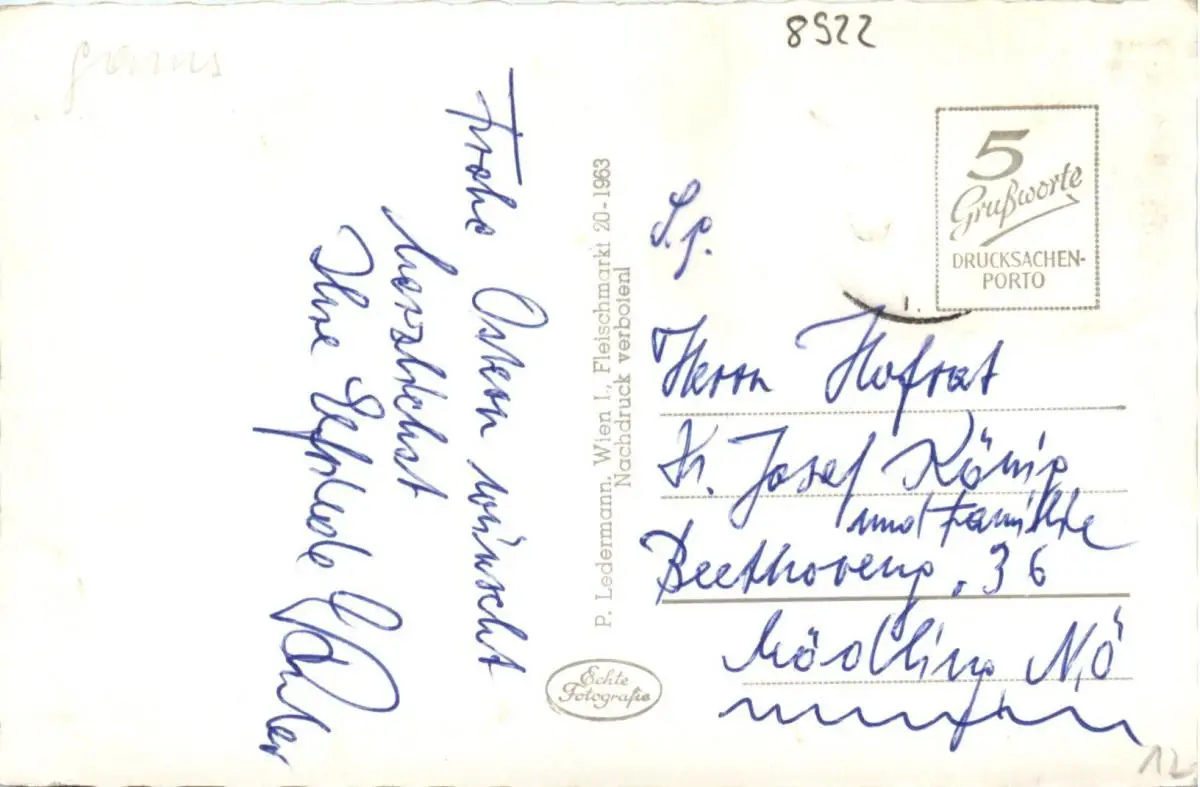 8922
Frohe Ostern wünscht
herzlichst
Ihre Elfriede
P. Ledermann, Wien I., Fleischmarkt 20-1963
Nachdruck verboten!
Echte
Fotografie
5
Grußworte
DRUCKSACHEN-
PORTO
S.p.
Herrn Hofrat
Dr. Josef König
und Familie
Beethoveng. 36
Mödling, NÖ
12